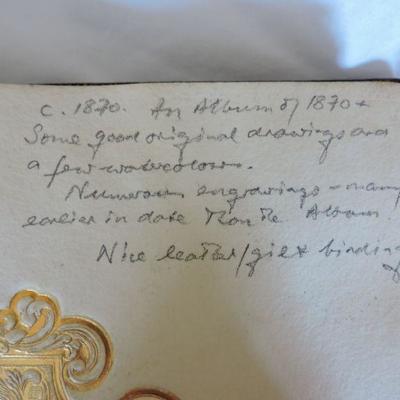 c. 1870. An Album of 1870 +
Some good original drawings and
a few watercolours.
Numerous engravings - many
earlier in date than the Album.
Nice leather/gilt binding